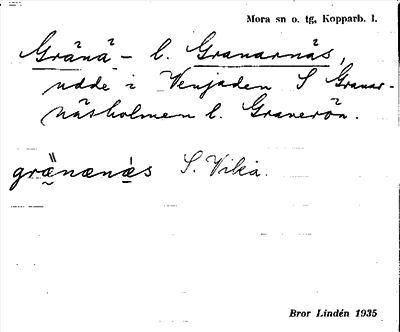 Mora sn o. tg, Kopparb. l.
Gränä- l. Granarnäs,
udde i Venjaden S Granar-
näsholmen l. Graverön.
gränænæs S. Vika.
Bror Lindén 1935